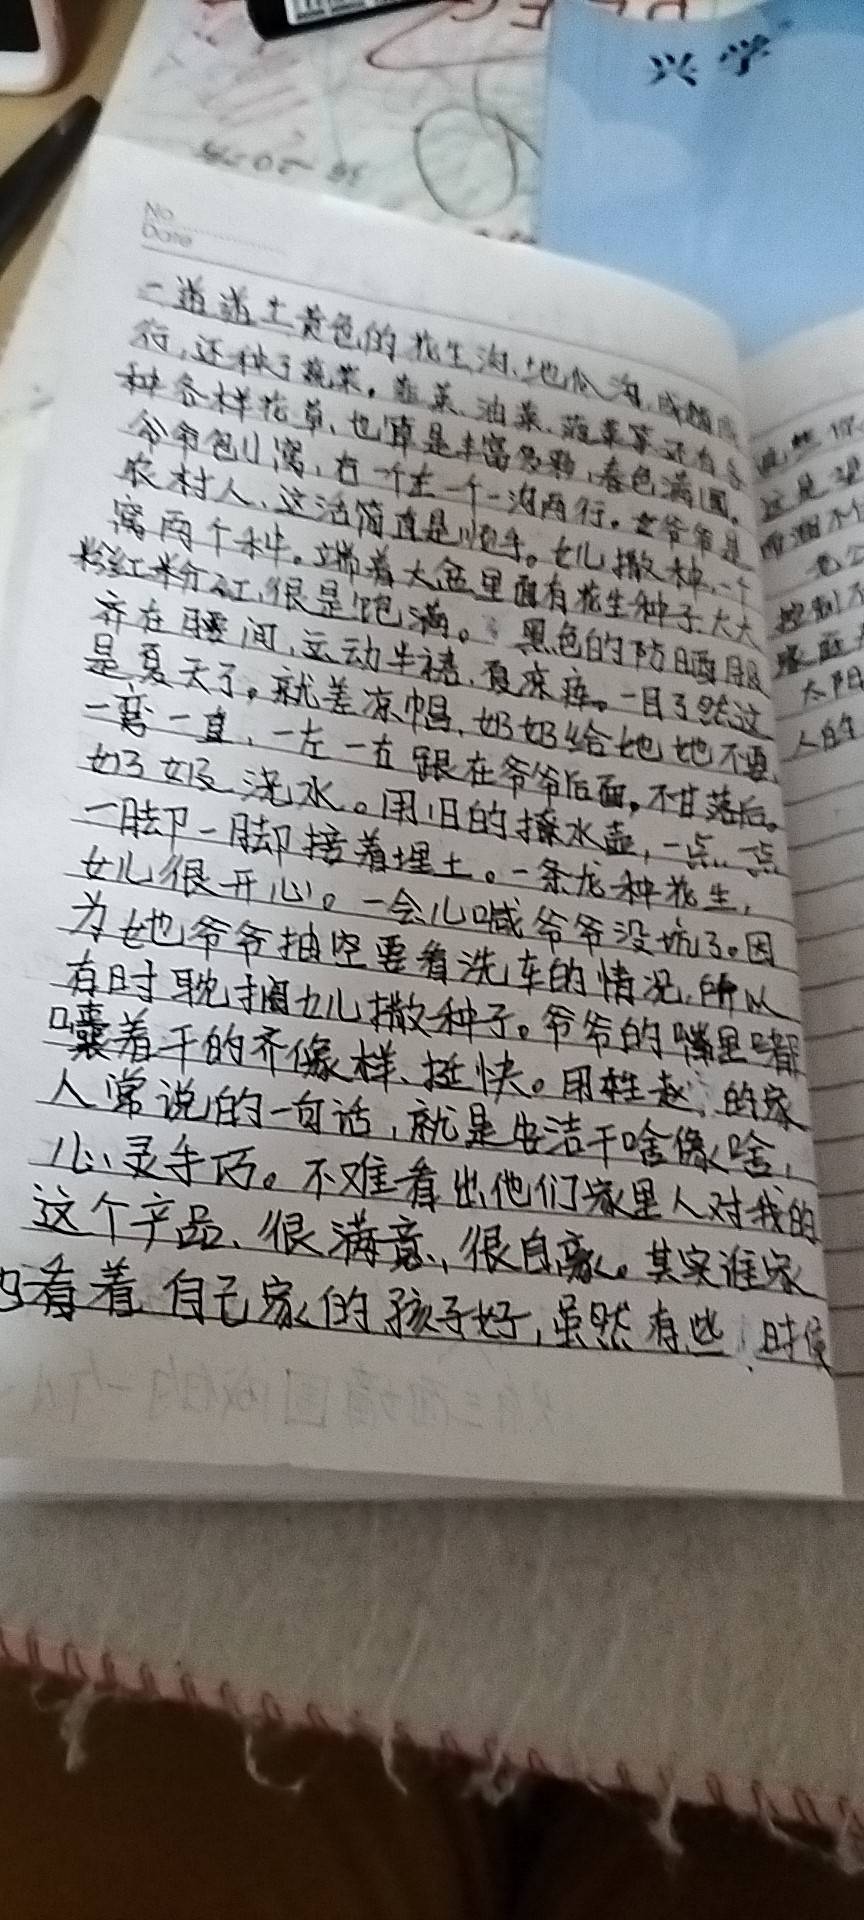 兴学
No
Date
一道道土黄色的花生沟、地瓜沟，成趟成
行，还种了蔬菜，韭菜、油菜、菠菜等还有各
种各样花草，也算是丰富多彩，春色满园。
爷爷包山窝，右一个左一个一沟两行。女爷爷是
农村人、这活简直是顺手。女儿撒种，一个
窝两个种。端着大盆里面有花生种子、大大
粉红粉红、很是饱满。黑色的防晒服
齐在腰间，运动半裙，夏凉裤。一目了然这
是夏天了。就差凉帽，奶奶给她她不要，
一弯一直，一左一右跟在爷爷后面，不甘落后。
奶奶浇水。用旧的撩水壶，一点一点
一脚一脚接着埋土。一条龙种花生，
女儿很开心。一会儿喊爷爷没坑了。因
为她爷爷抽空要看洗车的情况，所以
有时耽搁女儿撒种子。爷爷的嘴里嘟
囔着干的齐像样、挺快。用姓赵的家
人常说的一句话，就是安洁干啥像啥，
心灵手巧。不难看出他们家里人对我的
这个产品、很满意、很自豪。其实谁家
都看着自己家的孩子好，虽然有些时候
这是
太阳
人的